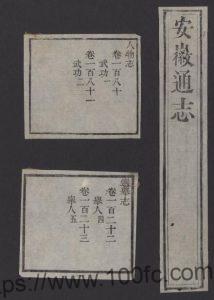 安徽通志
人物志
卷一百八十
武功一
卷一百八十一
武功二
選舉志
卷一百二十二
舉人四
卷一百二十三
舉人五
https://www.100fc.com